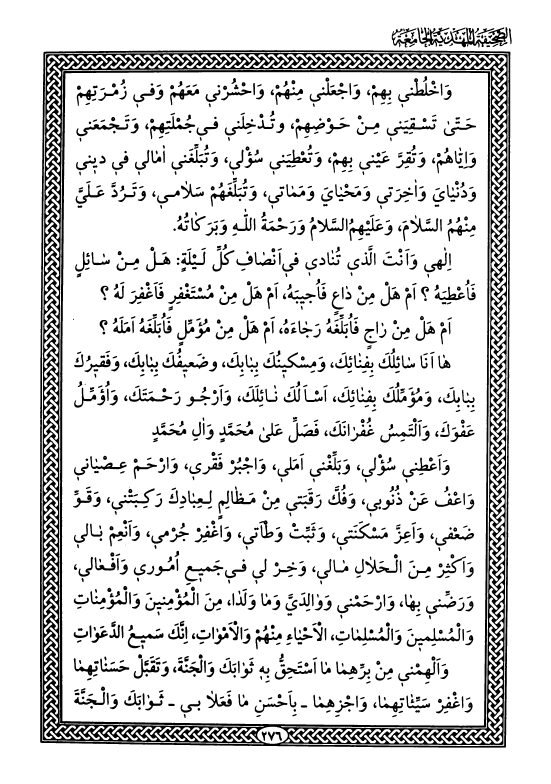 الصَّحِيفَةُ الْمَهْدِيَّةُ الْجَامِعَةُ
وَاخْلُطْني بِهِمْ، وَاجْعَلْني مِنْهُمْ، وَاحْشُرْني مَعَهُمْ وَفي زُمْرَتِهِمْ
حَتّىٰ تَسْقِيَني مِنْ حَوْضِهِمْ، وتُدْخِلَني في جُمْلَتِهِمْ، وَتَجْمَعَني
وَاِيّٰاهُمْ، وَتُقِرَّ عَيْني بِهِمْ، وَتُعْطِيَني سُؤْلي، وَتُبَلِّغَني اٰمٰالي في ديني
وَدُنْيٰايَ وَاٰخِرَتي وَمَحْيٰايَ وَمَمٰاتي، وَتُبَلِّغَهُمْ سَلٰامي، وَتَرُدَّ عَلَيَّ
مِنْهُمُ السَّلٰامَ، وَعَلَيْهِمُ السَّلٰامُ وَرَحْمَةُ اللَّهِ وَبَرَكٰاتُهُ.
اِلٰهي وَاَنْتَ الَّذي تُنٰادي في اَنْصٰافِ كُلِّ لَيْلَةٍ: هَلْ مِنْ سٰائِلٍ
فَاُعْطِيَهُ ؟ اَمْ هَلْ مِنْ دٰاعٍ فَاُجيبَهُ، اَمْ هَلْ مِنْ مُسْتَغْفِرٍ فَاَغْفِرَ لَهُ ؟
اَمْ هَلْ مِنْ رٰاجٍ فَاُبَلِّغَهُ رَجٰاءَهُ، اَمْ هَلْ مِنْ مُؤَمِّلٍ فَاُبَلِّغَهُ اَمَلَهُ ؟
هٰا اَنَا سٰائِلُكَ بِفِنٰائِكَ، وَمِسْكينُكَ بِبٰابِكَ، وضَعيفُكَ بِبٰابِكَ، وَفَقيرُكَ
بِبٰابِكَ، وَمُؤَمِّلُكَ بِفِنٰائِكَ، اَسْاَلُكَ نٰائِلَكَ، وَاَرْجُو رَحْمَتَكَ، وَاُؤَمِّلُ
عَفْوَكَ، وَاَلْتَمِسُ غُفْرٰانَكَ، فَصَلِّ عَلىٰ مُحَمَّدٍ وَاٰلِ مُحَمَّدٍ
وَاَعْطِني سُؤْلي، وَبَلِّغْني اَمَلي، وَاجْبُرْ فَقْري، وَارْحَمْ عِصْيٰاني
وَاعْفُ عَنْ ذُنُوبي، وَفُكَّ رَقَبَتي مِنْ مَظٰالِمٍ لِعِبٰادِكَ رَكِبَتْني، وَقَوِّ
ضَعْفي، وَاَعِزَّ مَسْكَنَتي، وَثَبِّتْ وَطْأَتي، وَاغْفِرْ جُرْمي، وَاَنْعِمْ بٰالي
وَاَكْثِرْ مِنَ الْحَلٰالِ مٰالي، وَخِرْ لي في جَميعِ اُمُوري وَاَفْعٰالي،
وَرَضِّني بِهٰا، وَارْحَمْني وَوٰالِدَيَّ وَمٰا وَلَدٰا، مِنَ الْمُؤْمِنينَ وَالْمُؤْمِنٰاتِ
وَالْمُسْلِمينَ وَالْمُسْلِمٰاتِ، الْاَحْيٰاءِ مِنْهُمْ وَالْاَمْوٰاتِ، اِنَّكَ سَميعُ الدَّعَوٰاتِ
وَاَلْهِمْني مِنْ بِرِّهِمٰا مٰا اَسْتَحِقُّ بِهِ ثَوٰابَكَ وَالْجَنَّةَ، وَتَقَبَّلْ حَسَنٰاتِهِمٰا
وَاغْفِرْ سَيِّئٰاتِهِمٰا، وَاجْزِهِمٰا ـ بِاَحْسَنِ مٰا فَعَلٰا بي ـ ثَوٰابَكَ وَالْجَنَّةَ
٢٧٦